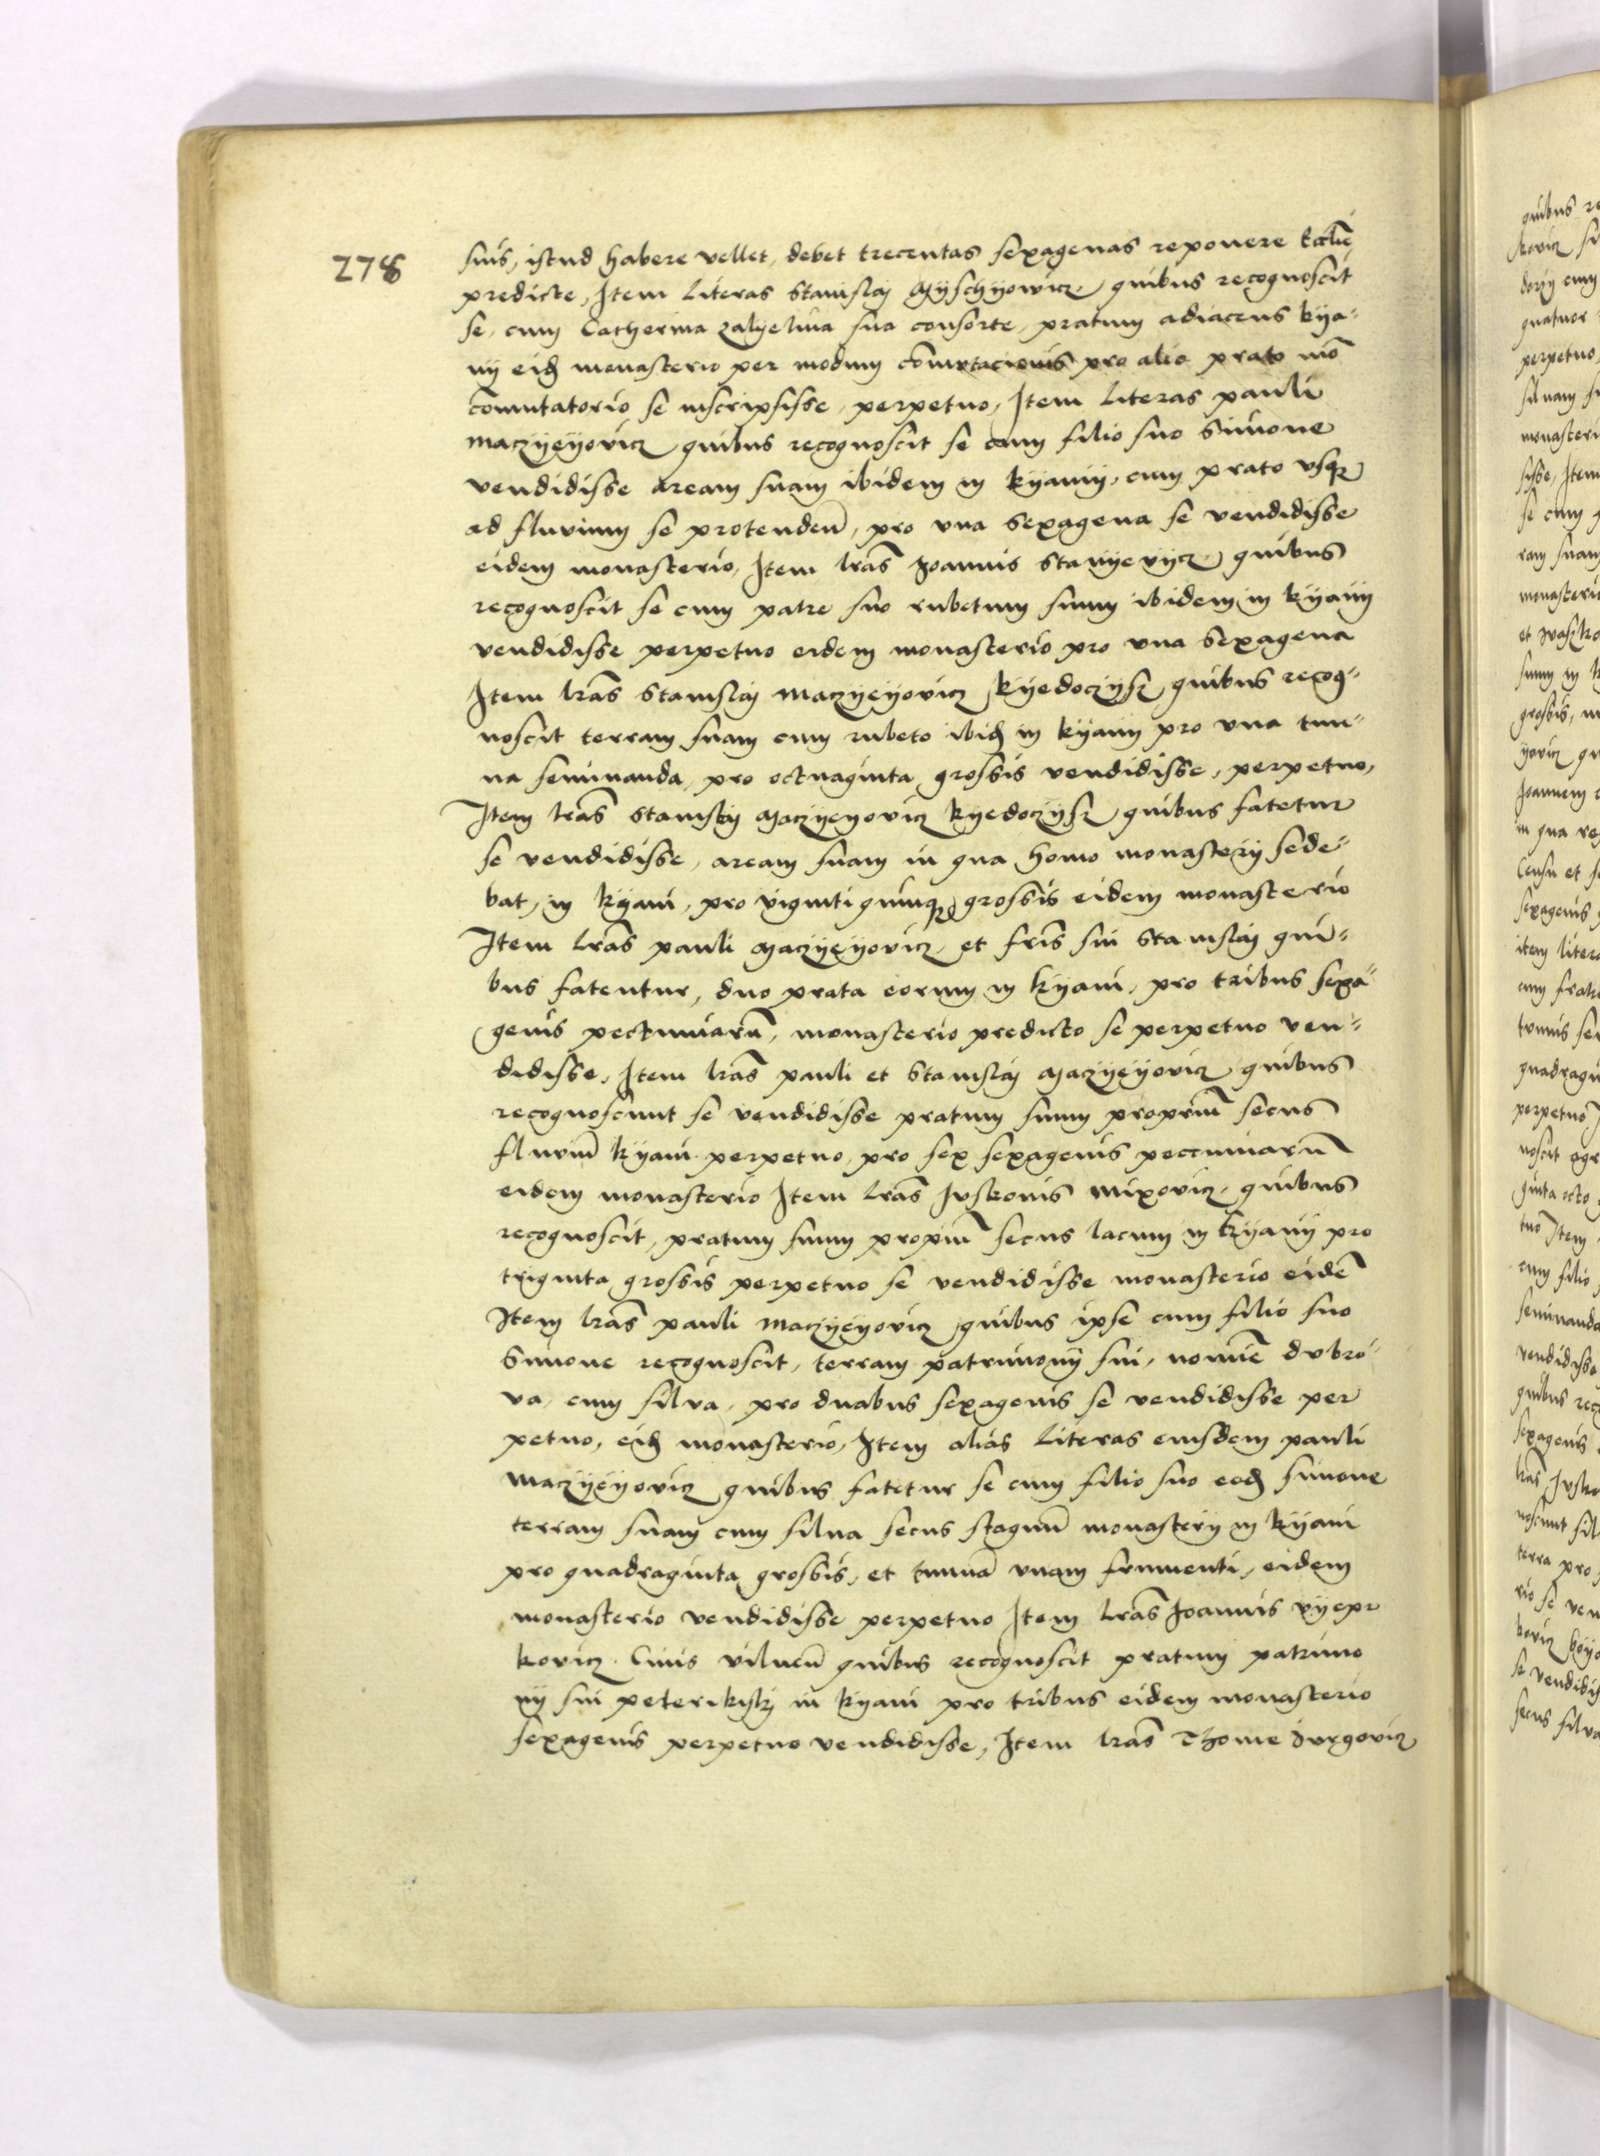 278
suis, istud habere vellet, debet trecentas sexagenas reponere Ecclie
predicte, Item Literas Stanislai Myschyowicz, quibus recognoscit
se, cum Catherina zalyelina sua consorte, pratum adiacens kya-
nij eidẽ monasterio per modum cõmutacionis pro alio prato mõ
cõmutatorio se inscripsisse, perpetuo, Item Literas pauli
maczyeyovicz quibus recognoscit se cum filio suo Simone
vendidisse aream suam ibidem in kyanij, cum prato vsqz
ad fluvium se protendeñ, pro vna Sexagena se vendidisse
eidem monasterio, Item lrãs Joannis Stanyevycz, quibus
recognoscit se cum patre suo rubetum suum ibidem in kyanij
vendidisse perpetuo eidem monasterio pro vna Sexagena
Item lrãs Stanislai maczyeyovicz kyedoczysz, quibus recog-
noscit terram suam cum rubeto ibidẽ in kyanij pro vna tun-
na seminanda, pro octuaginta grossis vendidisse, perpetuo,
Item lrãs Stanislai Maczyeyovicz kyedoczysz quibus fatetur
se vendidisse, aream suam in qua homo monasterij sede-
bat, in kyani, pro viginti quinqz grossis eidem monasterio
Item lrãs pauli Maczyeyovicz, et fris sui Stanislai qui-
bus fatentur, duo prata eorum in kyani, pro tribus sexa-
genis peccuniarũ, monasterio predicto se perpetuo ven-
didisse, Item lrãs pauli et Stanislai Maczyeyovicz quibus
recognoscunt se vendidisse pratum suum propriũ secus
fluviũ kyani perpetuo, pro sex sexagenis peccuniarũ
eidem monasterio Item lrãs Juskonis mixovicz, quibus
recognoscit, pratum suum propiũ secus lacum in kyanij pro
triginta grossis perpetuo se vendidisse monasterio eidẽ
Item lrãs pauli maczyeyovicz quibus ipse cum filio suo
Simone recognoscit, terram patrimonij sui, nomiẽ dvbro-
va, cum silva, pro duabus sexagenis se vendidisse per
petuo, eidẽ monasterio, Item alias Literas eiusdem pauli
maczyeyovicz quibus fatetur se cum filio suo eodẽ Simone
terram suam cum silua secus stagnũ monasterij in kyani
pro quadraginta grossis, et tunnã vnam frumenti, eidem
monasterio vendidisse perpetuo Item lrãs Joannis vyepr
kovicz Civis vilneñ quibus recognoscit pratum patrimo
nij sui peterikiski in kyani pro tribus eidem monasterio
sexagenis perpetuo vendidisse, Item lrãs Thome Jurgovicz